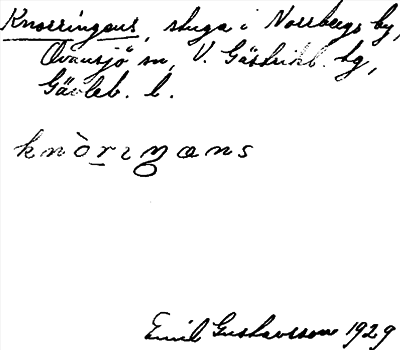 Knorringens, stuga i Norrbergs by,
Ovansjö sn, V. Gästrikl. tg,
Gävleb. l.
knòriŋans
Emil Gustavsson 1929